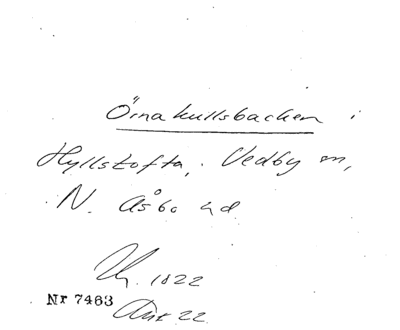 Örnakullsbacken i
Hyllstofta, Vedby sn,
N. Åsbo hd
1822
Nr 7463
22